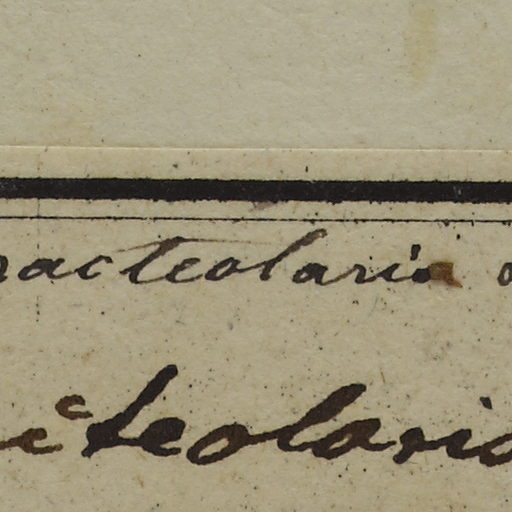 racteolaria
cteolaria